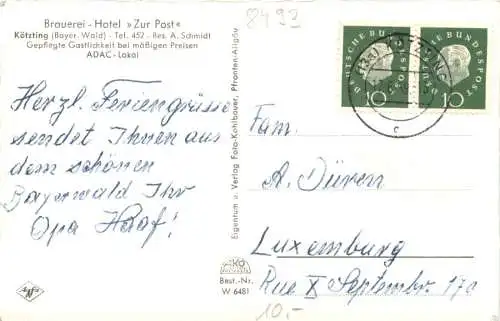 Brauerei - Hotel »Zur Post«
Kötzting (Bayer. Wald) - Tel. 452 - Bes. A. Schmidt
Gepflegte Gastlichkeit bei mäßigen Preisen
ADAC - Lokal
8493
Herzl. Feriengrüsse
sendet Ihnen aus
dem schönen
Bayerwald Ihr
Opa Haaf!
Eigentum u. Verlag Foto-Kohlbauer, Pfronten-Allgäu
DEUTSCHE BUNDESPOST
10
DEUTSCHE BUNDESPOST
10
KÖTZTING
c
Fam.
A. Düren
Luxemburg
Rue X Septembre 17a
Best.-Nr.
W 6481
10,-